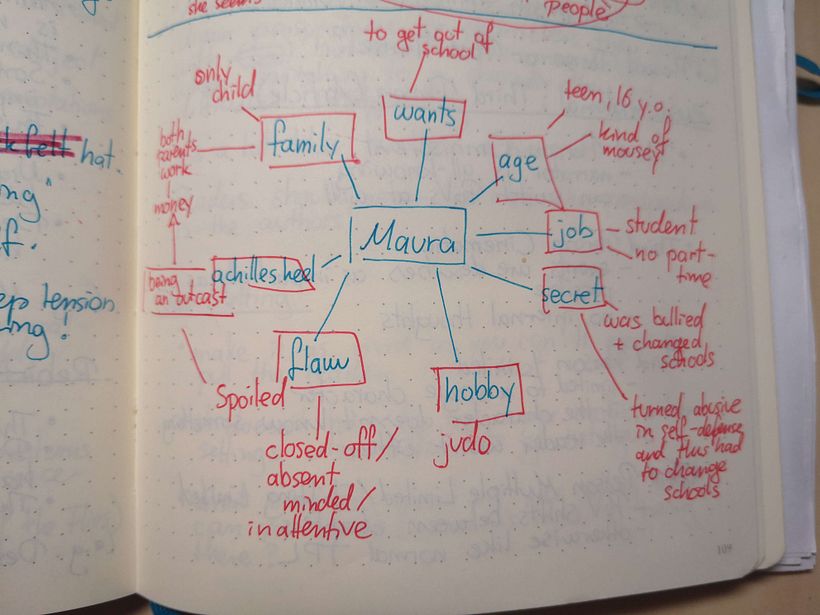 she seems
People
to get out of
school
only
child
wants
teen, 16 y.o.
family
kind of
mousey
age
both
parents
work
money
Maura
job
student
no part-
time
achilles heel
being
an outcast
secret
was bullied
+ changed
schools
flaw
hobby
Spoiled
judo
closed-off/
absent
minded/
inattentive
turned abusive
in self-defense
and thus had
to change
schools
hat.
ng"
f.
ep tension
ng!
109